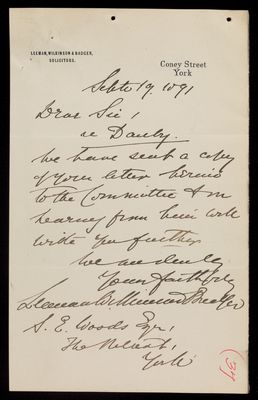 LEEMAN, WILKINSON & BADGER,
SOLICITORS.
Coney Street
York
Septr 19. 1891
Dear Sir,
re Danby.
We have sent a copy
of your letter herein
to the Committee & on
hearing from him will
write you further
We are dear Sir
Yours faithfully
Leeman Wilkinson & Badger
S. E. Woods Esqr,
The Retreat,
York